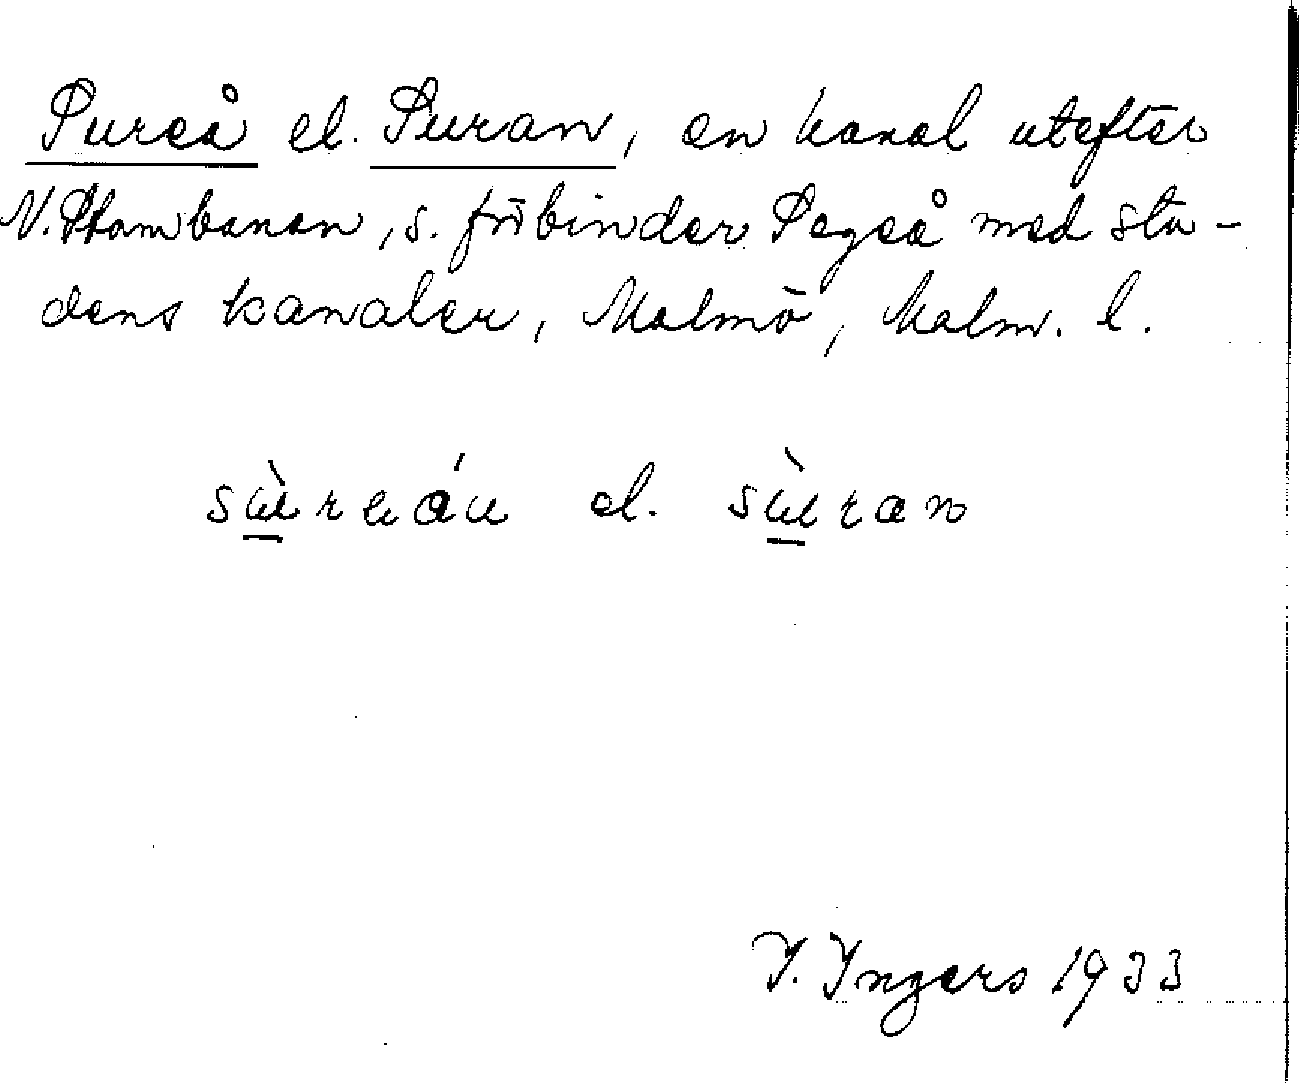 Sureå el. Suran, en kanal utefter
V. Stambanan, s. förbinder Segeå med sta-
dens kanaler, Malmö, Malm. l.
sùreáu el. sùran
I. Ingers 1933